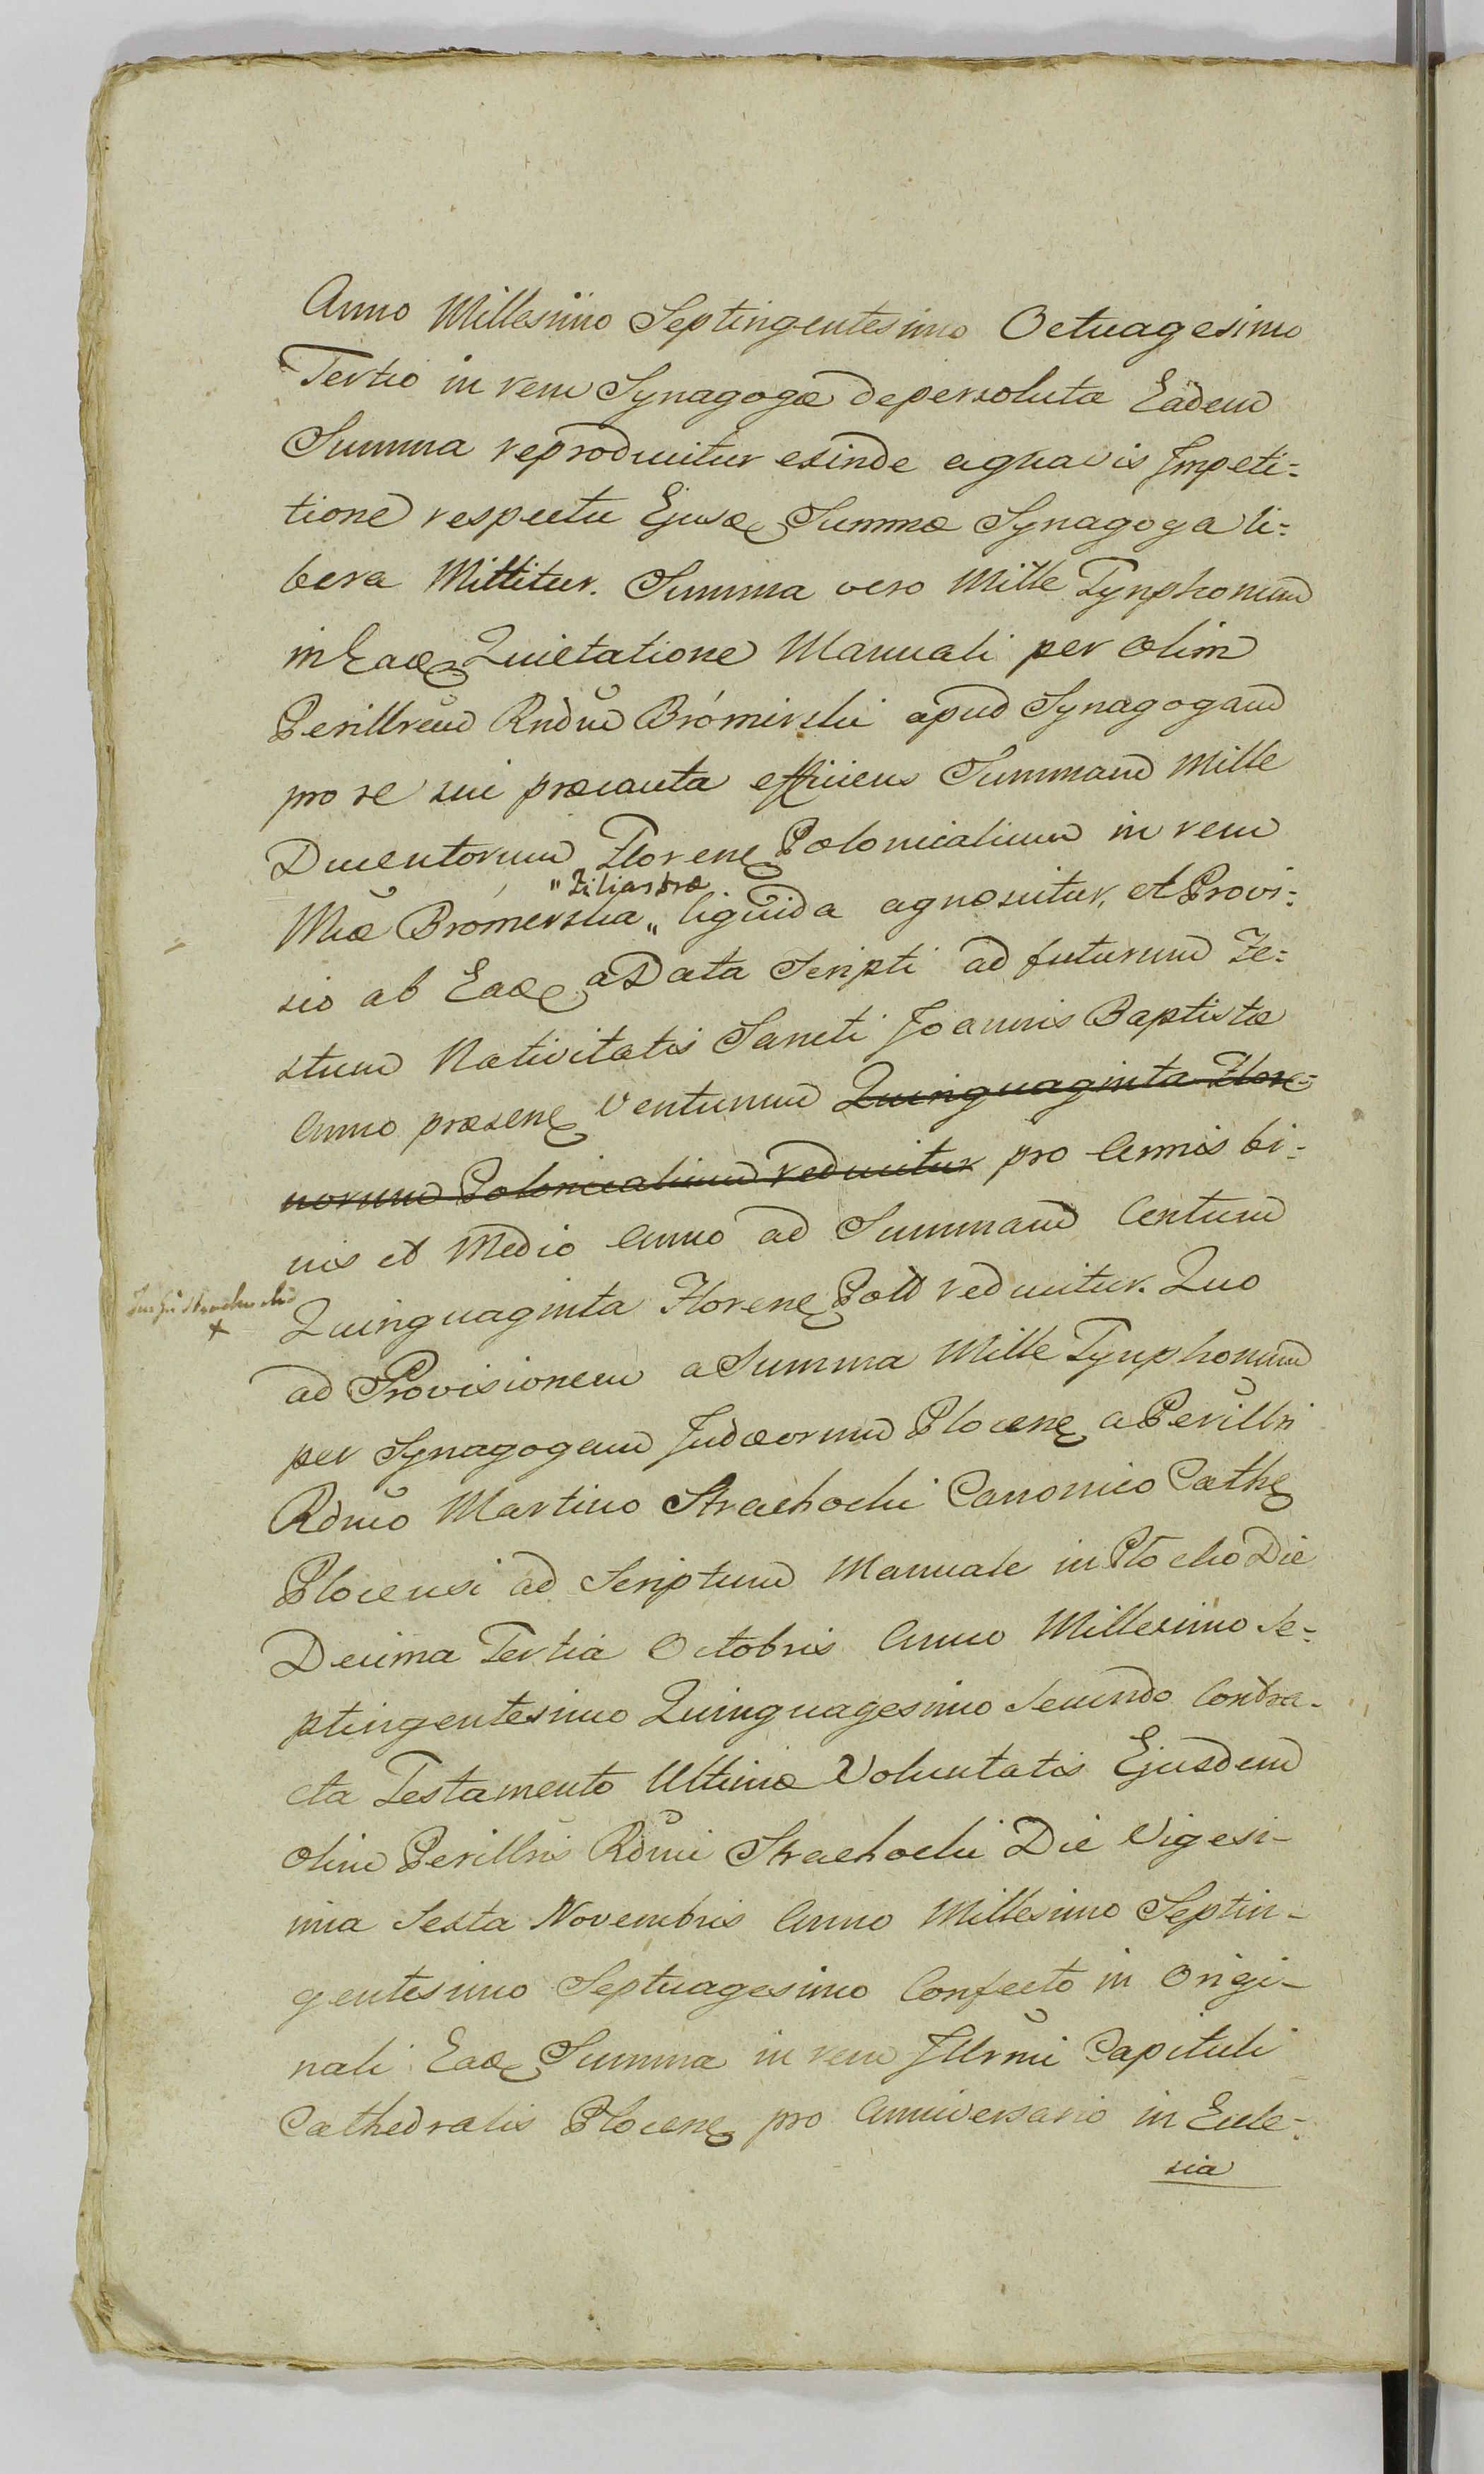 Anno Millesimo Septingentesimo Octuagesimo
Tertio in rem Synagogæ depersoluta Eadem
Summa reproducitur exinde a gravis Impeti=
tione respectu Ejusd Summæ Synagoga li=
bera Mittitur. Summa vero Mille Tynphonum
in Ead Quietatione Manuali per olim
Perillrem Rndum Bromirski apud Synagogam
pro se sui præcauta efficiens Summam Mille
Ducentorum Floren Polonicalium in rem
"Filiastræ
Mcæ Bromerska „ liquida agnoscitur, et Provi=
sio ab Ead a Data Scripti ad futurum Fe=
stum Nativitatis Sancti Joannis Baptistæ
Anno præsen Venturum Quinquaginta Flore=
norum Polonicalium reducitur pro Annis bi=
nis et Medio Anno ad Summam Centum
Quinquaginta Floren Poll reducitur. Quo
ad Provisionem a Summa Mille Tynphonum
per Synagogam Judæorum Plocen a Perillri
Rdmo Martino Strachocki Canonico Cathe
Plocensi ad Scriptum Manuale in Plocko Die
Decima Tertia Octobris Anno Millesimo Se=
ptingentesimo Quinquagesimo Secundo Contra-
cta Testamento Ultimæ Voluntatis Ejusdem
olim Perillris Rdmi Strachocki Die Vigesi-
ma Sexta Novembris Anno Millesimo Septin-
gentesimo Septuagesimo Confecto in Origi-
nali Ead Summa in rem Illrmi Capituli
Cathedralis Plocen pro Anniversario in Eccle=
sia